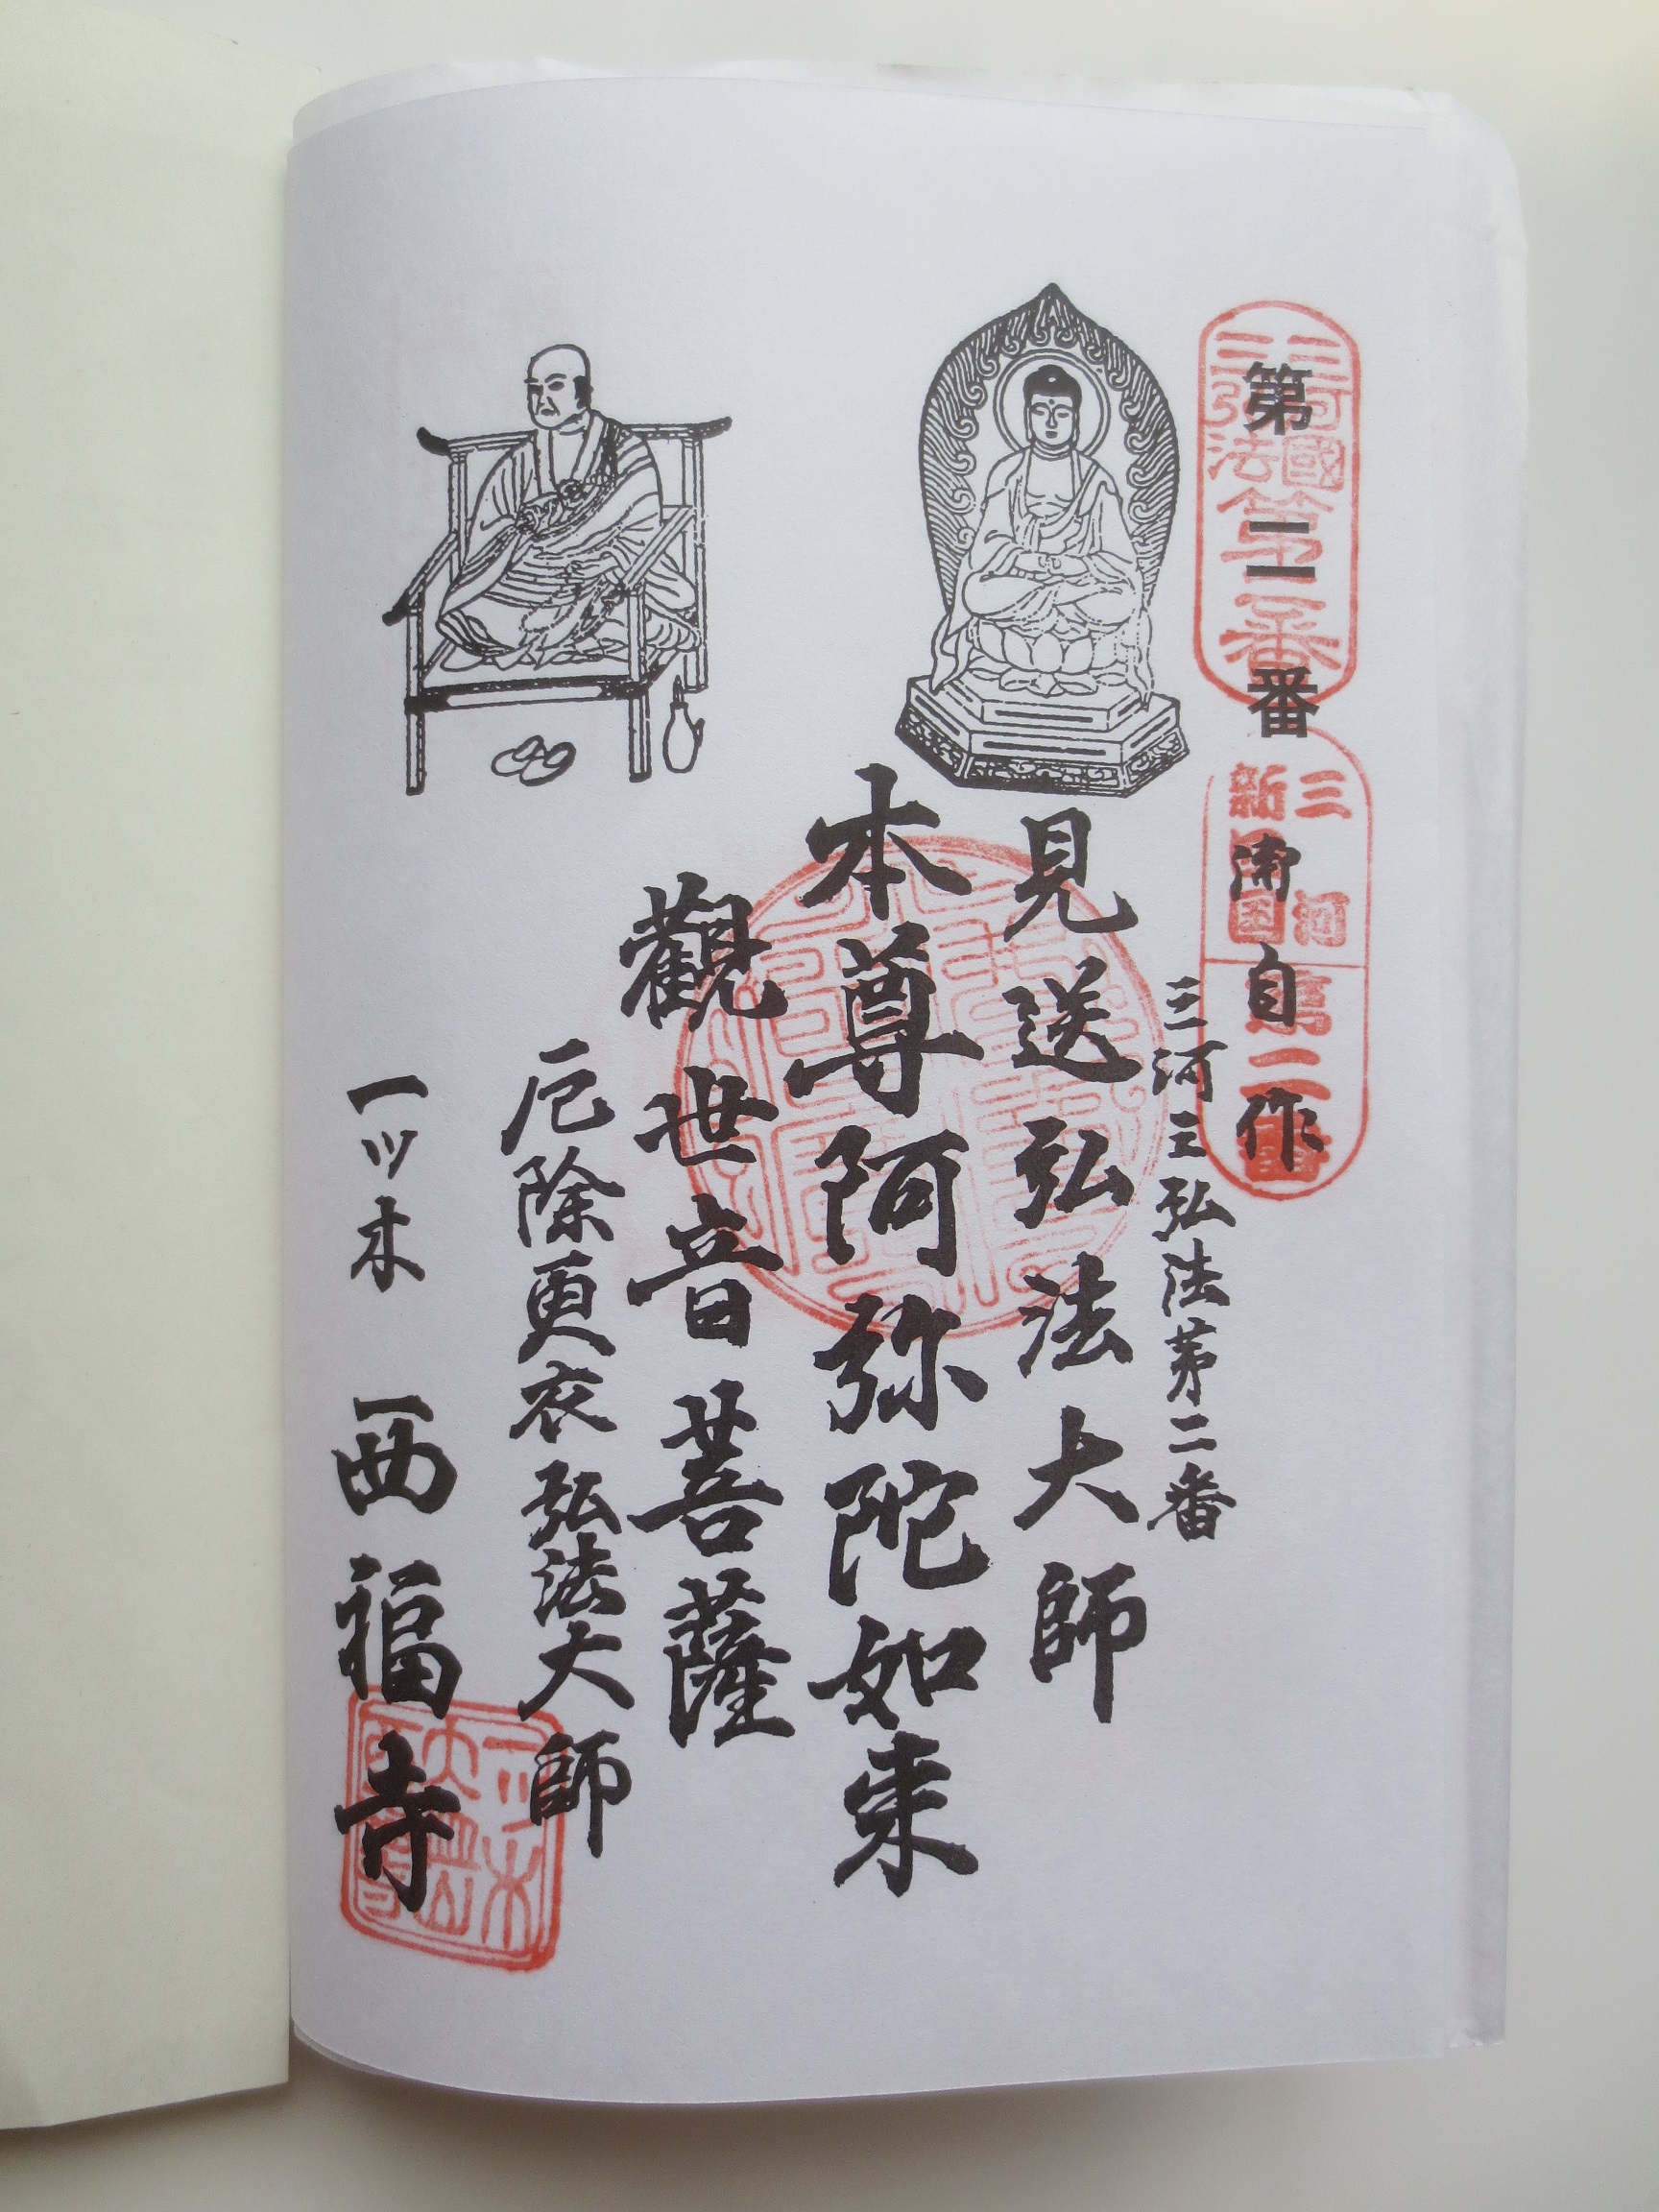 第二番
三河国三弘法第二番
三河新四国第二番
御自作
三河三弘法第二番
見送弘法大師
本尊阿弥陀如来
觀世音菩薩
厄除更衣弘法大師
一ツ木 西福寺